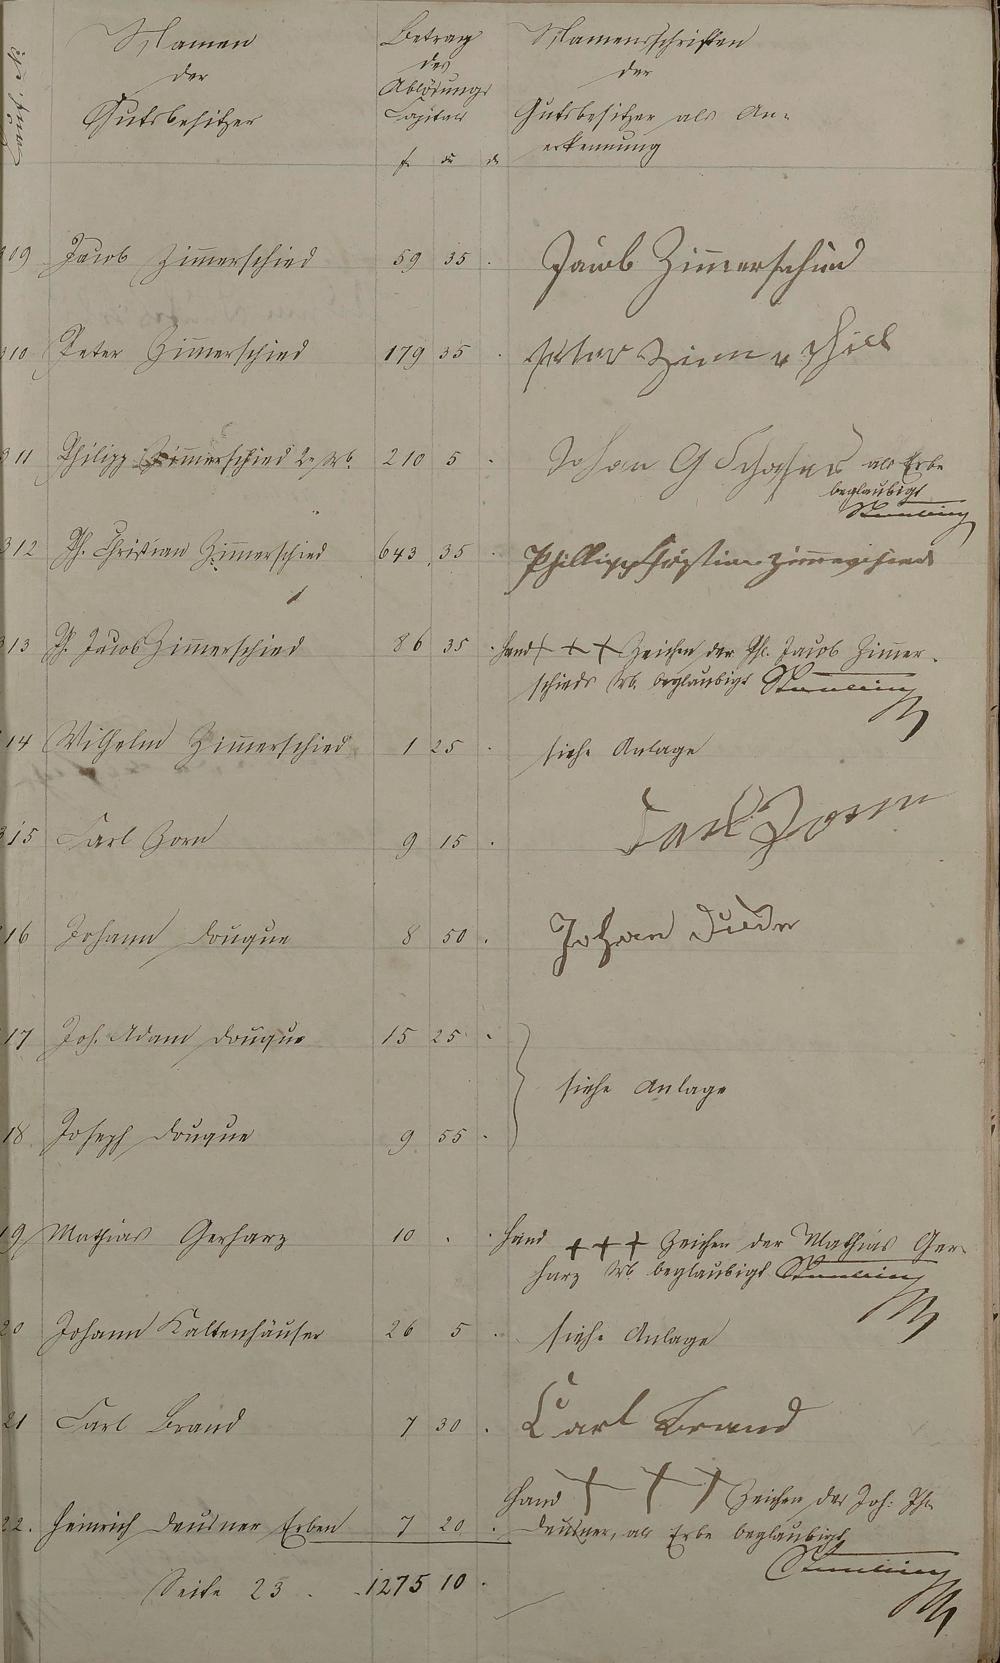 Namen
der
Gutsbesitzer
Betrag
des
Ablösungs
Capitals
f. xr d.
Namensschriften
der
Gutsbesitzer als An-
erkennung
309 Jacob Zim̄erschied 59 35 . Jacob Zim̄erschied
310 Peter Zim̄erschied 179 35 . Peter Zimerschied
311 Philipp Zim̄erschied 2r Wb. 210 5 . Johan G als Erbe
beglaubigt
312 Ph. Christian Zim̄erschied 643 35 . Phillipp Christian Zimerschied
313 Ph. Jacob Zim̄erschied 86 35 . Hand +++ Zeichen der Phl. Jacob Zim̄er-
schieds Wb. beglaubigt
14 Wilhelm Zim̄erschied 1 25 . siehe Anlage
315 Carl Zorn 9 15 . Carl Zorn
16 Johann Douque 8 50 . Johan
17 Joh. Adam Douque 15 25 .
siehe Anlage
18 Joseph Douque 9 55 .
19 Mathias Gerharz 10 . . Hand +++ Zeichen der Mathias Ger-
harz Wb. beglaubigt
20 Johann Kaltenhäuser 26 5 . siehe Anlage
21 Carl Brand 7 30 . Carl Brand
Hand +++ Zeichen des Joh. Phl.
22. Heinrich Deusner Erben 7 20 . Deusner, als Erbe beglaubigt
Seite 23 . 1275 10 .